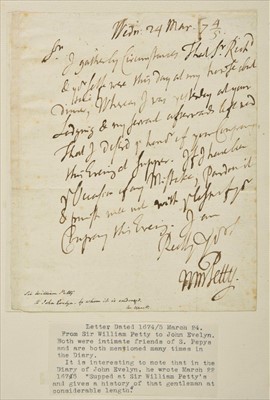 Wedn. 24 Mar. 7 4/5
Sr
I gather by Circumstances That Sr Rich'd
& yr selfe was this day at my house about
Dinner, Whereas I was yesterday at your
Lodging & my servant afterwards left word
That I desired ye honor of your Company
this Evening at Supper. If I have been
ye Occasion of any Mistake, Pardon it
& punish mee not with ye losse of yr
Company this Evening. I am
Wm Petty.
Sir William Petty
to John Evelyn, to whom it is
Letter Dated 1674/5 March 24.
From Sir William Petty to John Evelyn.
Both were intimate friends of S. Pepys
and are both mentioned many times in
the Diary.
It is interesting to note that in the
Diary of John Evelyn, he wrote March 22
1674/5 "Supped at Sir William Petty's
and gives a history of that gentleman at
considerable length.